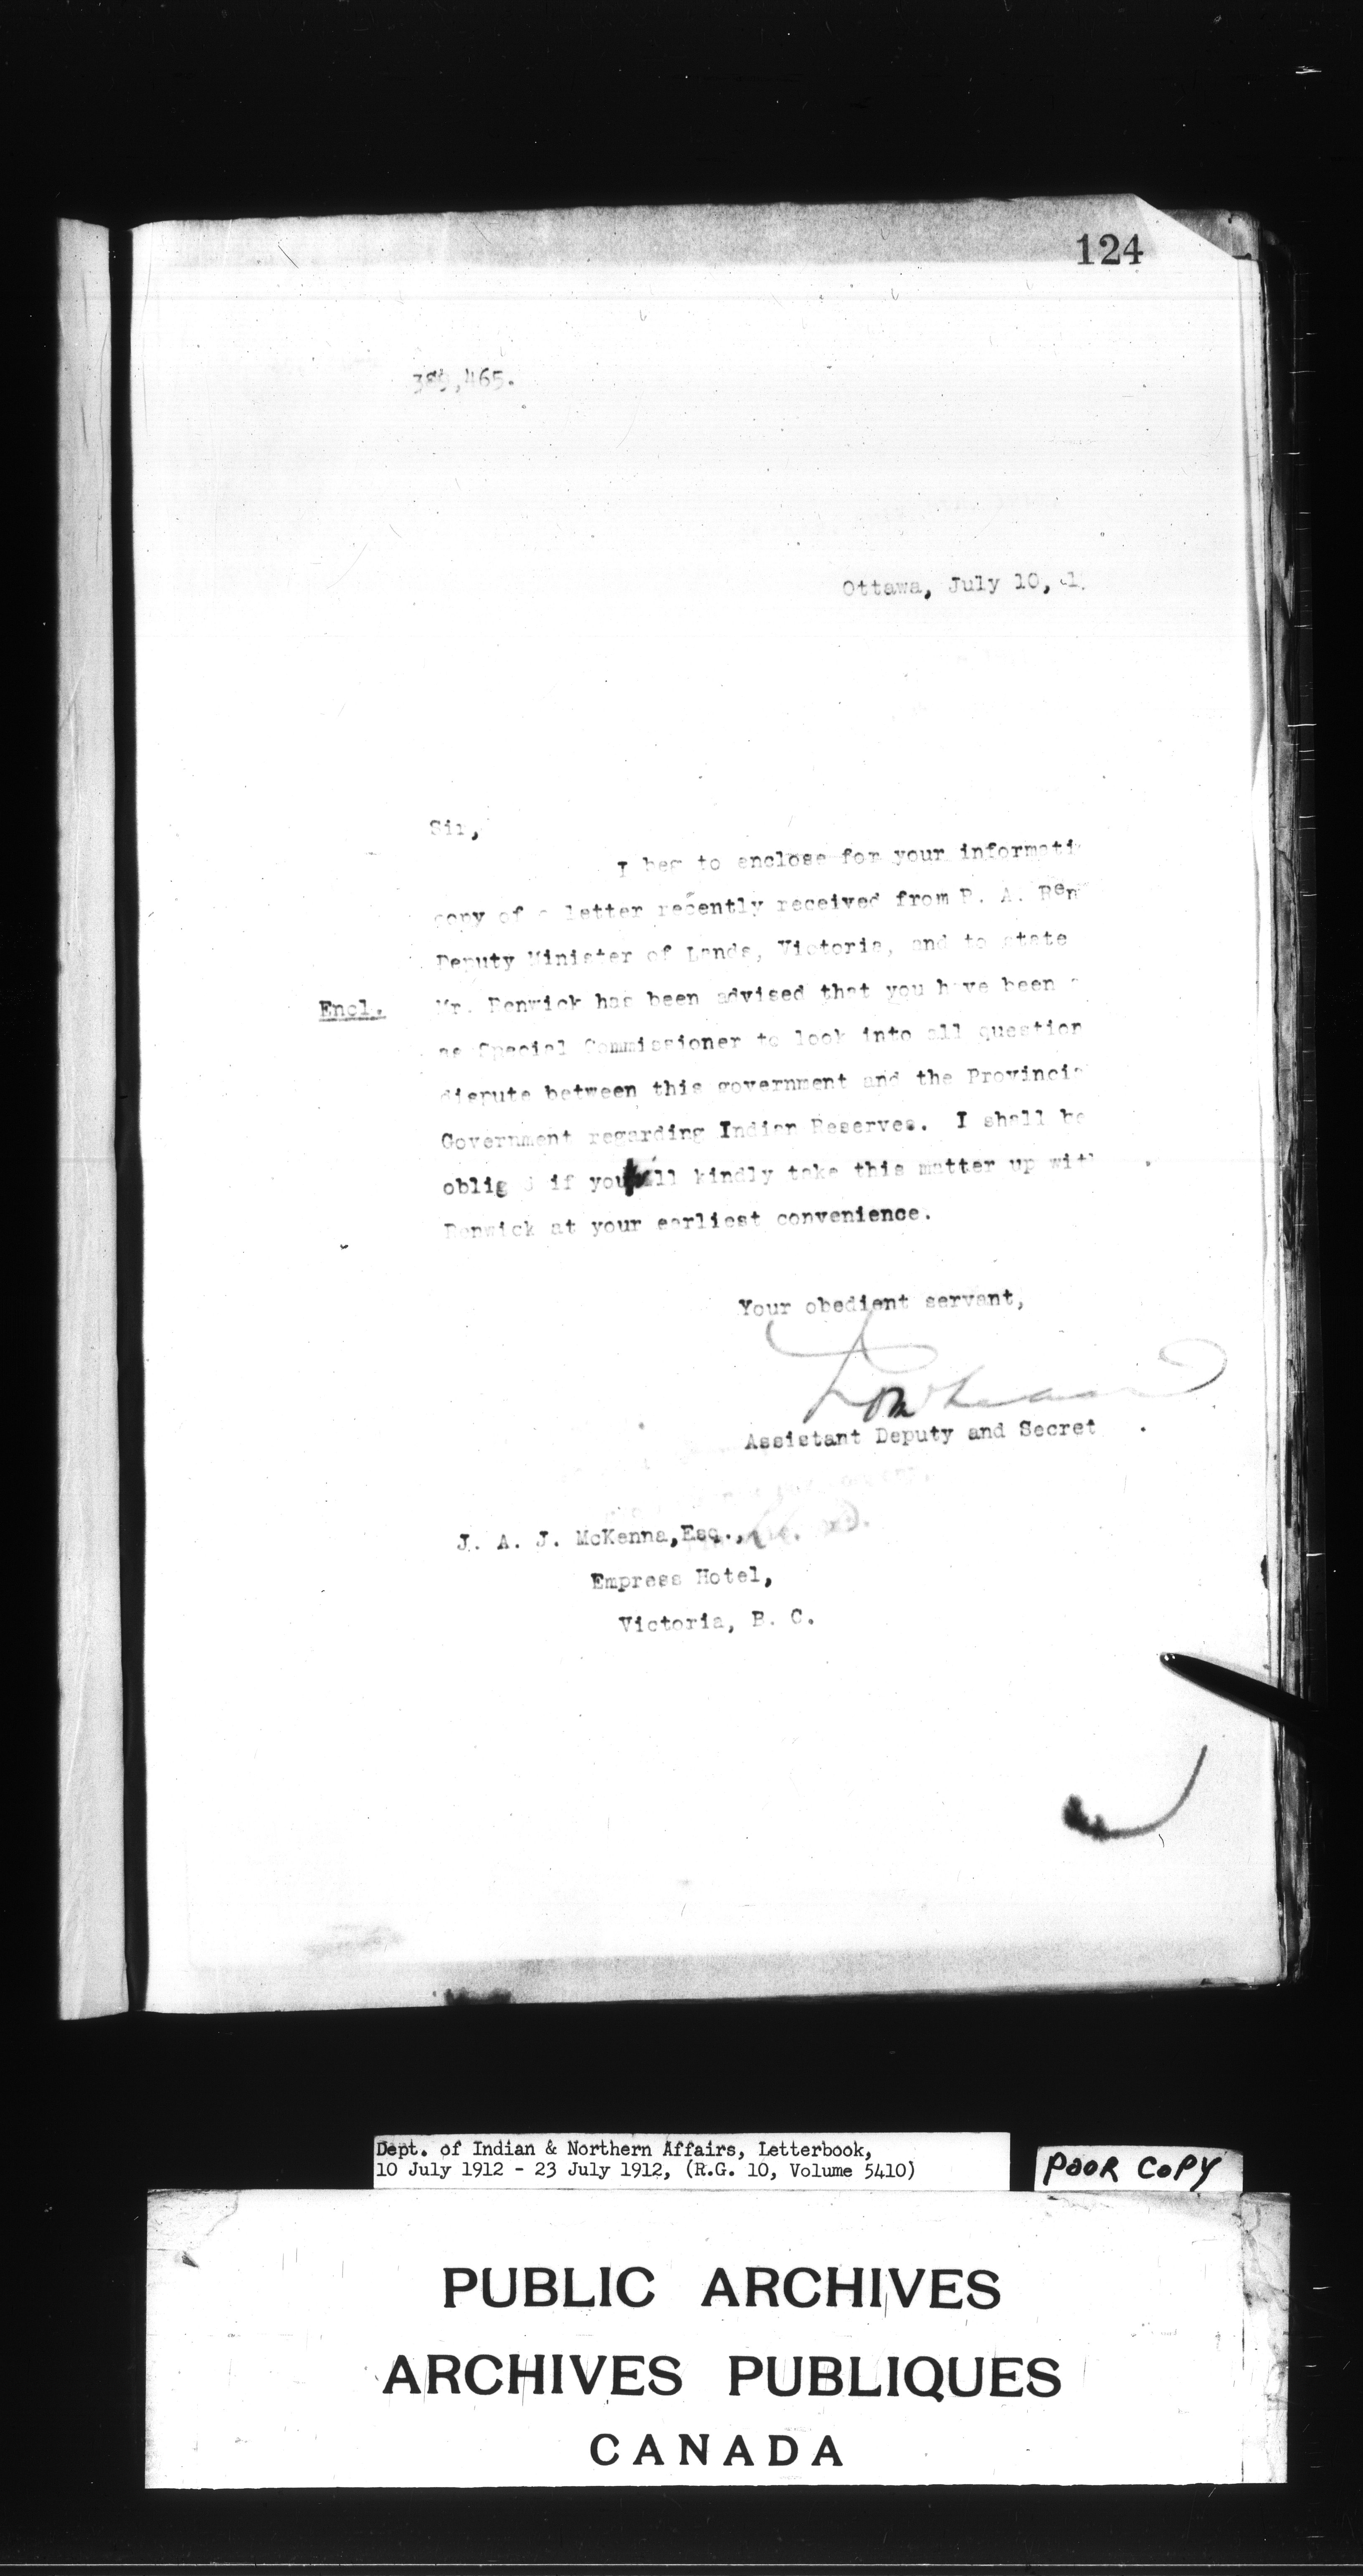 124
389,465.
Ottawa, July 10, 1
Sir,
I beg to enclose for your informati
copy of a letter recently received from R. A. Ren
Deputy Minister of Lands, Victoria, and to state
Encl. Mr. Renwick has been advised that you have been a
as Special Commissioner to look into all question
dispute between this government and the Provincia
Government regarding Indian Reserves. I shall be
oblig d if you will kindly take this matter up with
Renwick at your earliest convenience.
Your obedient servant,
Assistant Deputy and Secret
J. A. J. McKenna, Esq.,
Empress Hotel,
Victoria, B. C.
Dept. of Indian & Northern Affairs, Letterbook,
10 July 1912 - 23 July 1912, (R.G. 10, Volume 5410)
POOR COPY
PUBLIC ARCHIVES
ARCHIVES PUBLIQUES
CANADA